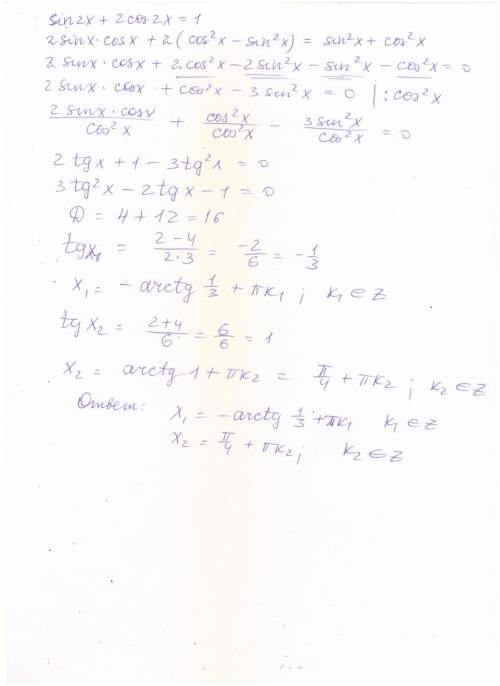 sin2x + 2cos2x = 1
2sinx·cosx + 2(cos²x − sin²x) = sin²x + cos²x
2 sinx·cosx + 2cos²x − 2sin²x − sin²x − cos²x = 0
2 sinx·cosx + cos²x − 3sin²x = 0 |:cos²x
2sinx·cosx/cos²x + cos²x/cos²x − 3sin²x/cos²x = 0
2tgx + 1 − 3tg²x = 0
3tg²x − 2tgx − 1 = 0
D = 4 + 12 = 16
tgx₁ = (2−4)/(2·3) = −2/6 = −1/3
x₁ = −arctg 1/3 + πk₁ ; k₁ ∈ Z
tgx₂ = (2+4)/6 = 6/6 = 1
x₂ = arctg1 + πk₂ = π/4 + πk₂ ; k₂ ∈ Z
Ответ: x₁ = −arctg 1/3 + πk₁ k₁ ∈ Z
x₂ = π/4 + πk₂ ; k₂ ∈ Z